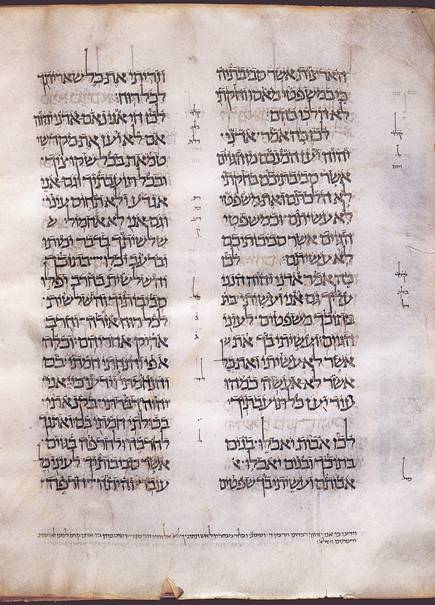 הארצות אשר סביבתיה
כי במשפטי מאסו וחקתי
לא הלכו בהם
לכן כה אמר אדני
יהוה יען המנכם מן הגוים
אשר סביבתיכם בחקתי
לא הלכתם ואת משפטי
לא עשיתם וכמשפטי
הגוים אשר סביבותיכם
לא עשיתם לכן
כה אמר אדני יהוה הנני
עליך גם אני ועשיתי בת
בתוכך משפטים לעיני
הגוים ועשיתי בך את
אשר לא עשיתי ואת כל
אשר לא אעשה כמהו
עוד יען כל תועבתיך
לכן אבות יאכלו בנים
בתוכך ובנים יאכלו א
אבותם ועשיתי בך שפטים
וזריתי את כל שאריתך
לכל רוח
לכן חי אני נאם אדני יהוה
אם לא יען את מקדשי
טמאת בכל שקוציך
ובכל תועבתיך וגם אני
אגרע ולא תחוס עיני
וגם אני לא אחמול
שלשיתך בדבר ימותו
וברעב יכלו בתוכך
והשלשית בחרב יפלו
סביבותיך והשלשית
לכל רוח אזרה וחרב
אריק אחריהם וכלה
אפי והנחותי חמתי בם
והנחמתי וידעו כי אני
יהוה דברתי בקנאתי
בכלותי חמתי בם ואתנך
לחרבה ולחרפה בגוים
אשר סביבותיך לעיני כל
עובר והיתה חרפה